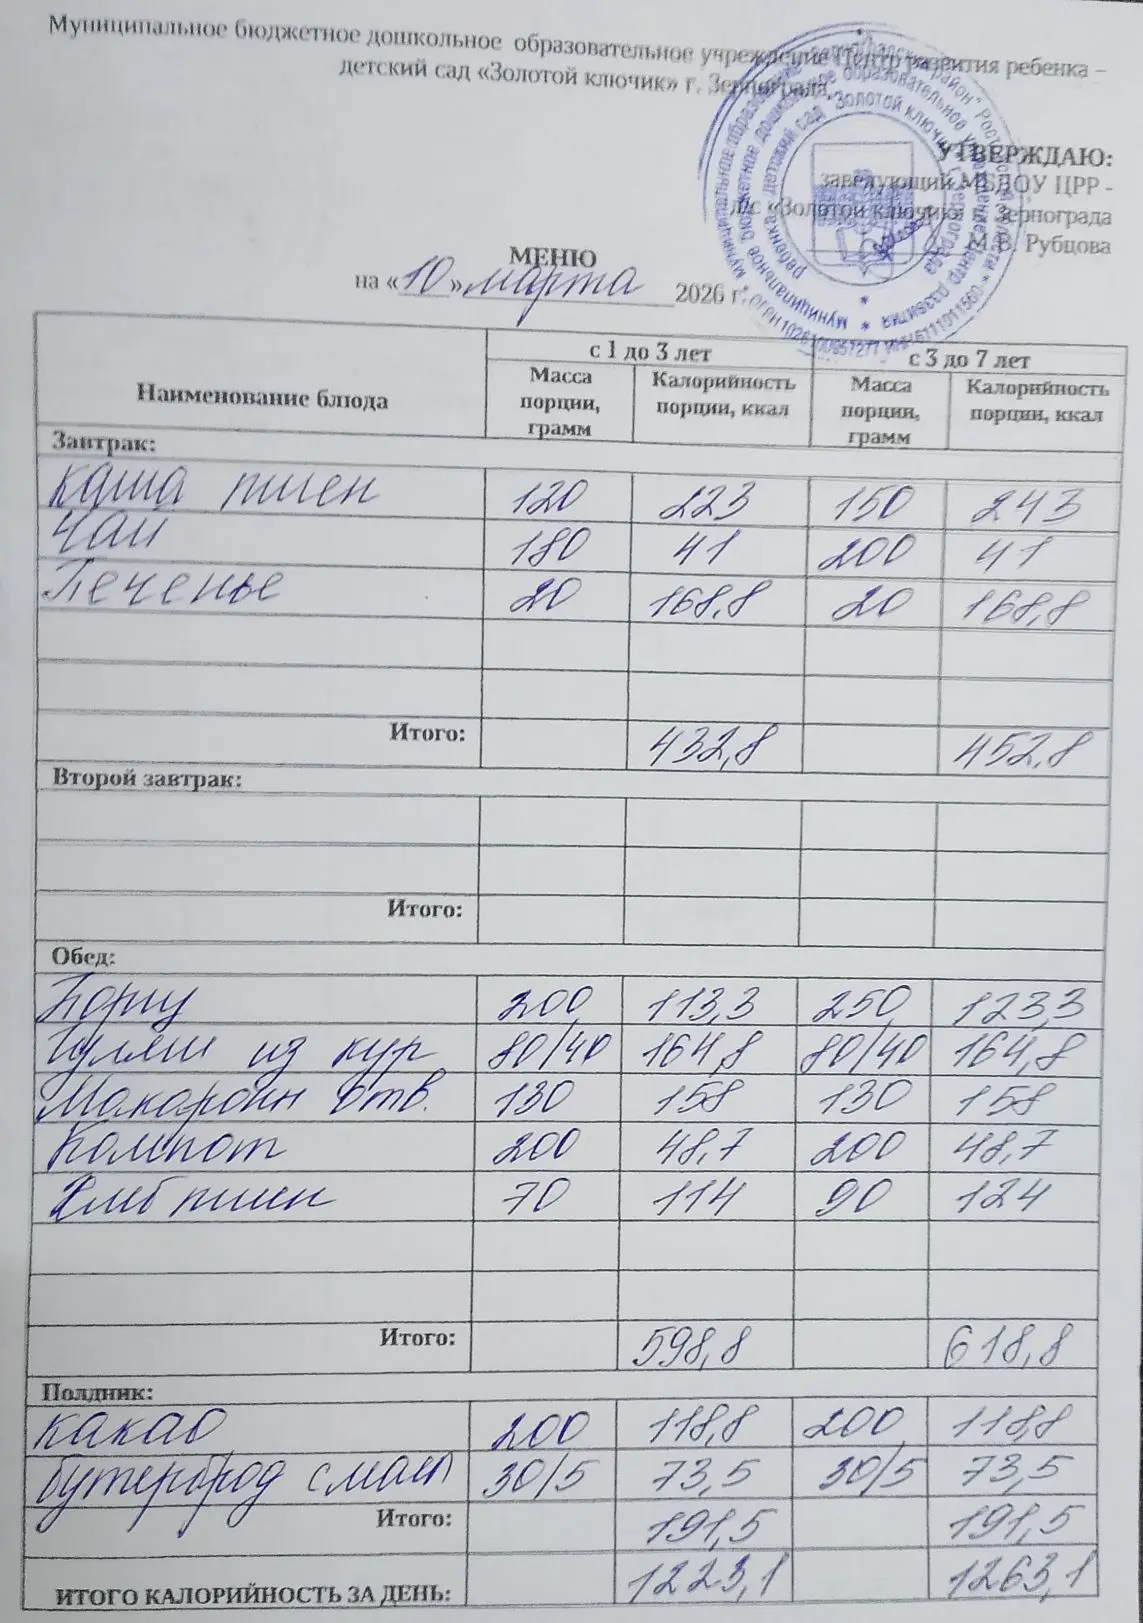 Муниципальное бюджетное дошкольное образовательное учреждение Центр развития ребенка –
детский сад «Золотой ключик» г. Зернограда
УТВЕРЖДАЮ:
заведующий МБДОУ ЦРР -
д/с «Золотой ключик» г. Зернограда
М.В. Рубцова
МЕНЮ
на «10» марта 2026 г.
Наименование блюда с 1 до 3 лет с 3 до 7 лет
Масса порции, грамм Калорийность порции, ккал Масса порции, грамм Калорийность порции, ккал
Завтрак:
каша пшен 120 223 150 243
Чай 180 41 200 41
Печенье 20 168,8 20 168,8
Итого: 432,8 452,8
Второй завтрак:
Итого:
Обед:
Борщ 200 113,3 250 123,3
Гуляш из кур 80/40 164,8 80/40 164,8
Макароны отв. 130 158 130 158
Компот 200 48,7 200 48,7
Хлеб пшен 70 114 90 124
Итого: 598,8 618,8
Полдник:
какао 200 118,8 200 118,8
бутерброд с масл 30/5 73,5 30/5 73,5
Итого: 191,5 191,5
ИТОГО КАЛОРИЙНОСТЬ ЗА ДЕНЬ: 1223,1 1263,1